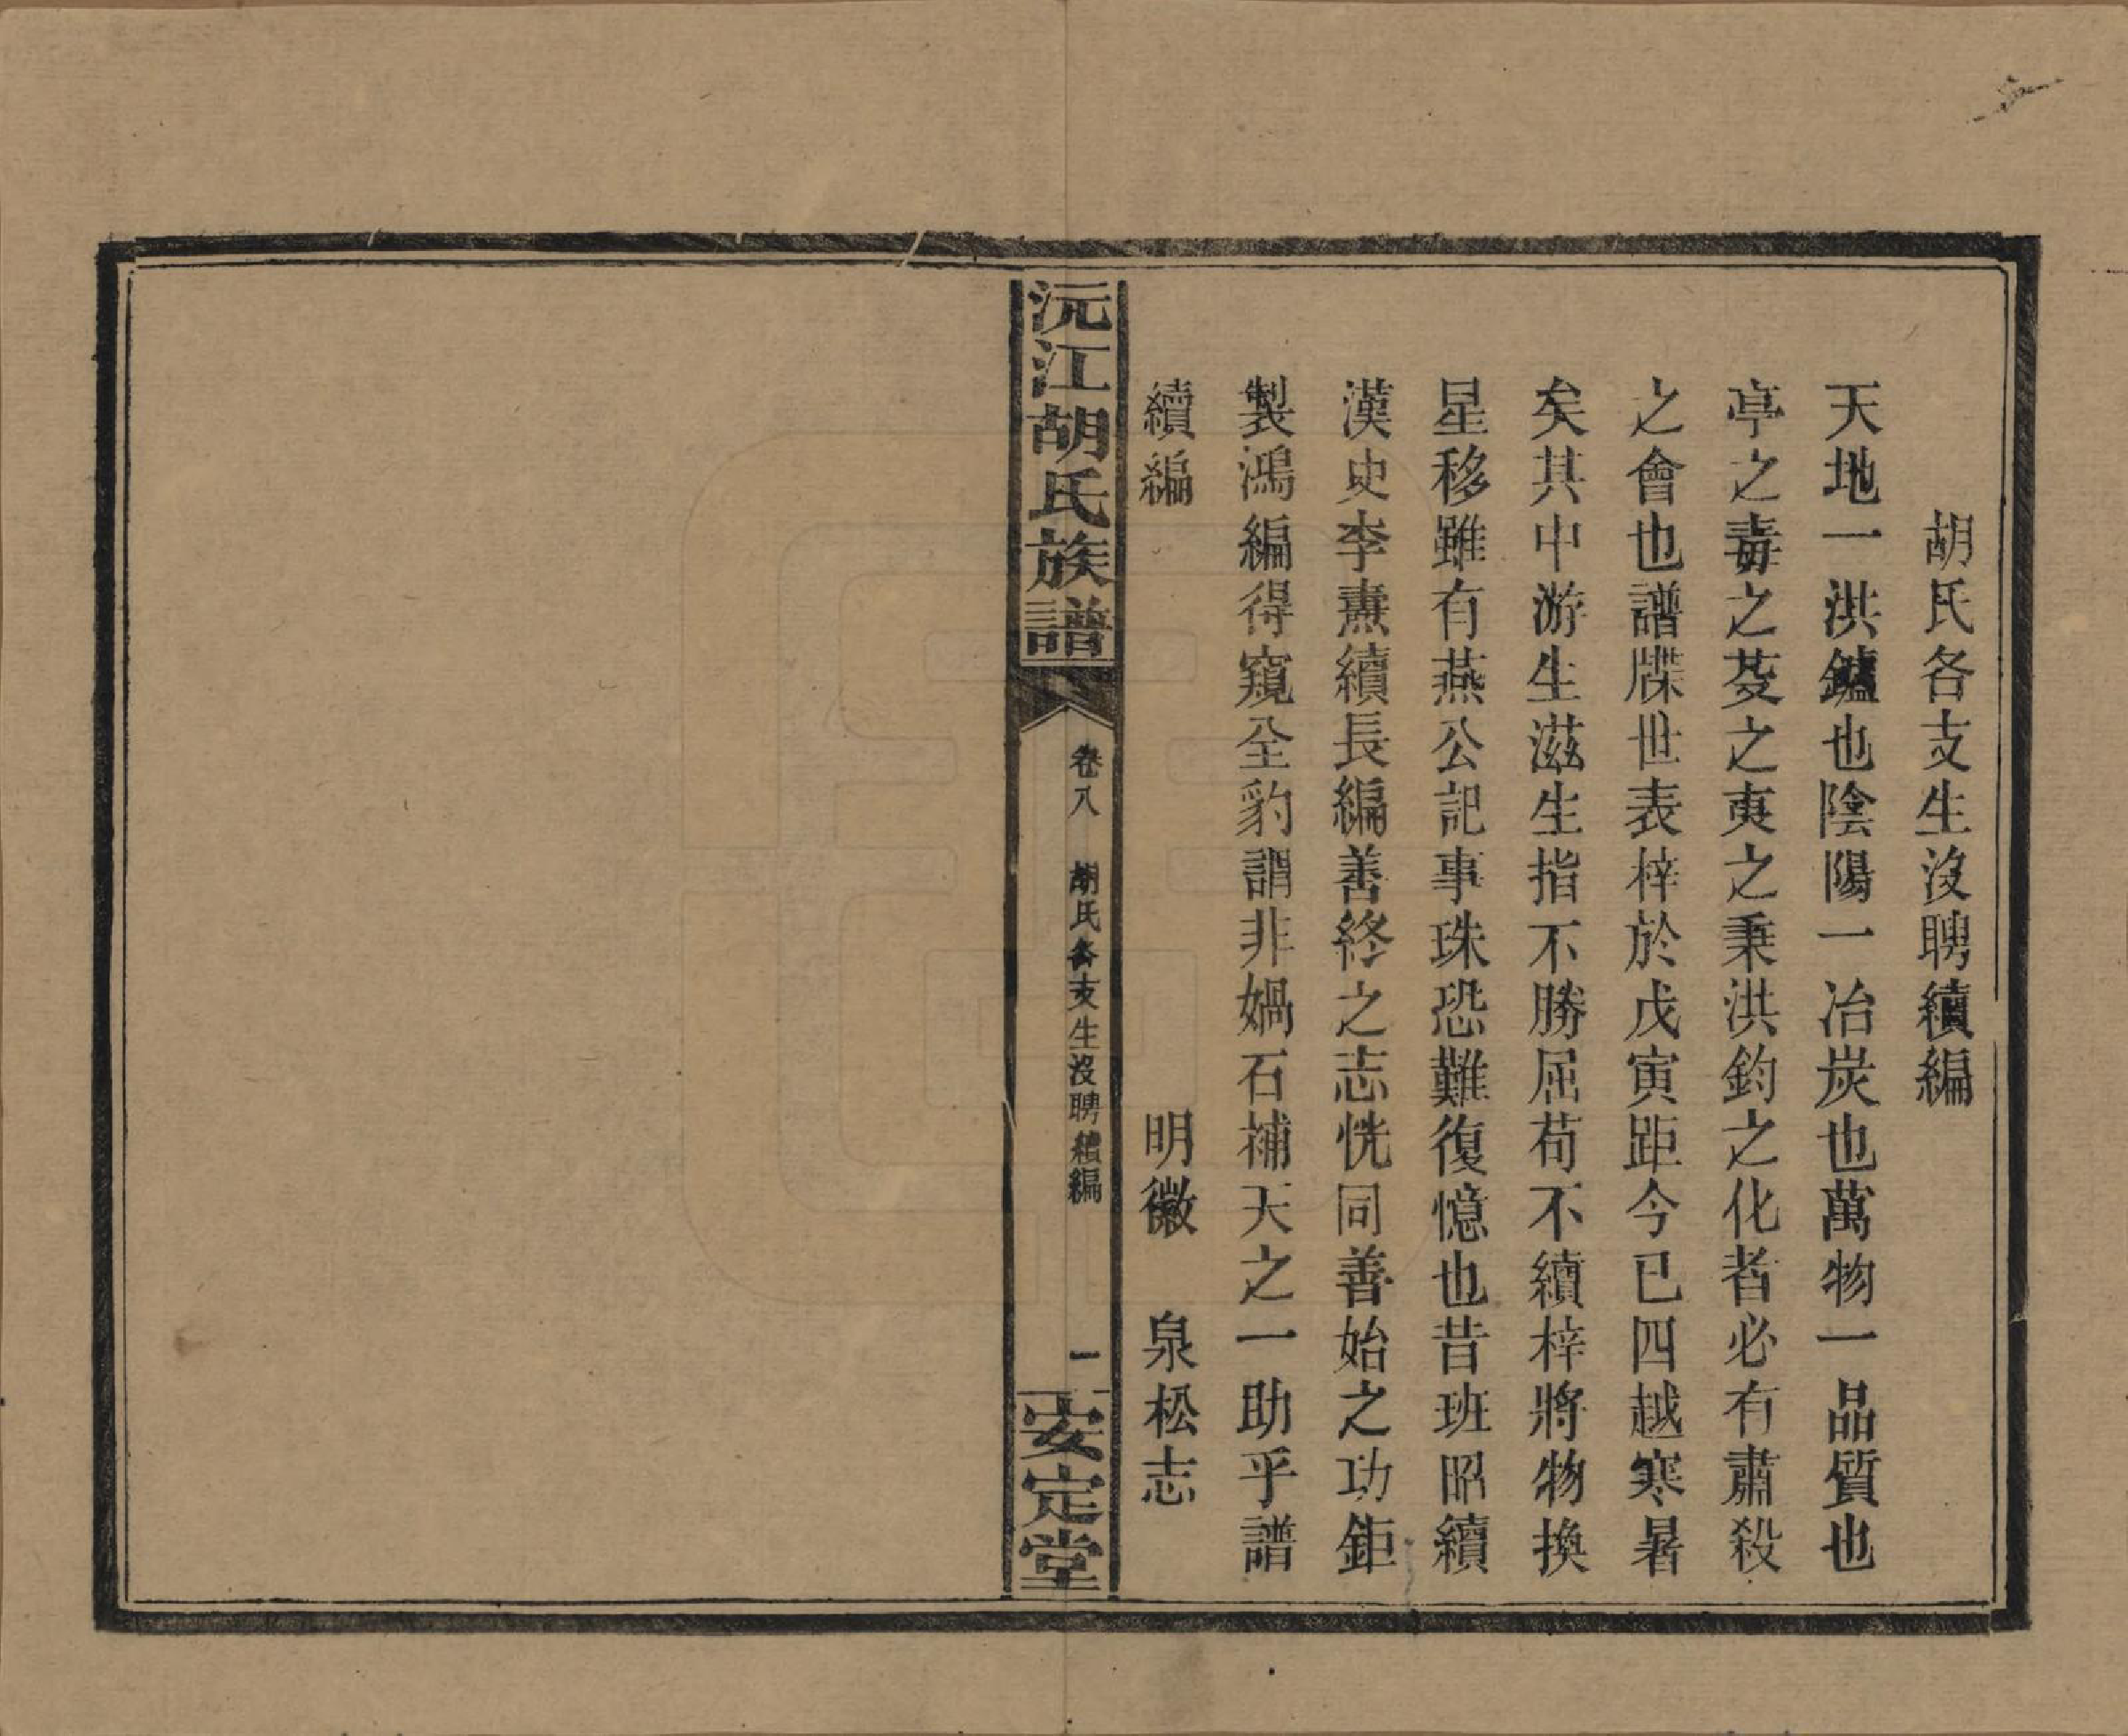 胡氏各支生沒聘續編
天地一洪鑪也陰陽一冶炭也萬物一品質也
亭之毒之芟之夷之秉洪鈞之化者必有肅殺
之會也譜牒世表梓於戊寅距今已四越寒暑
矣其中游生滋生指不勝屈苟不續梓將物換
星移雖有燕公記事珠恐難復憶也昔班昭續
漢史李燾續長編善終之志恍同善始之功鉅
製鴻編得窺全豹謂非媧石補天之一助乎譜
續編
明徽　泉松志
沅江胡氏族譜
卷八　胡氏各支生沒聘續編
一
安定堂